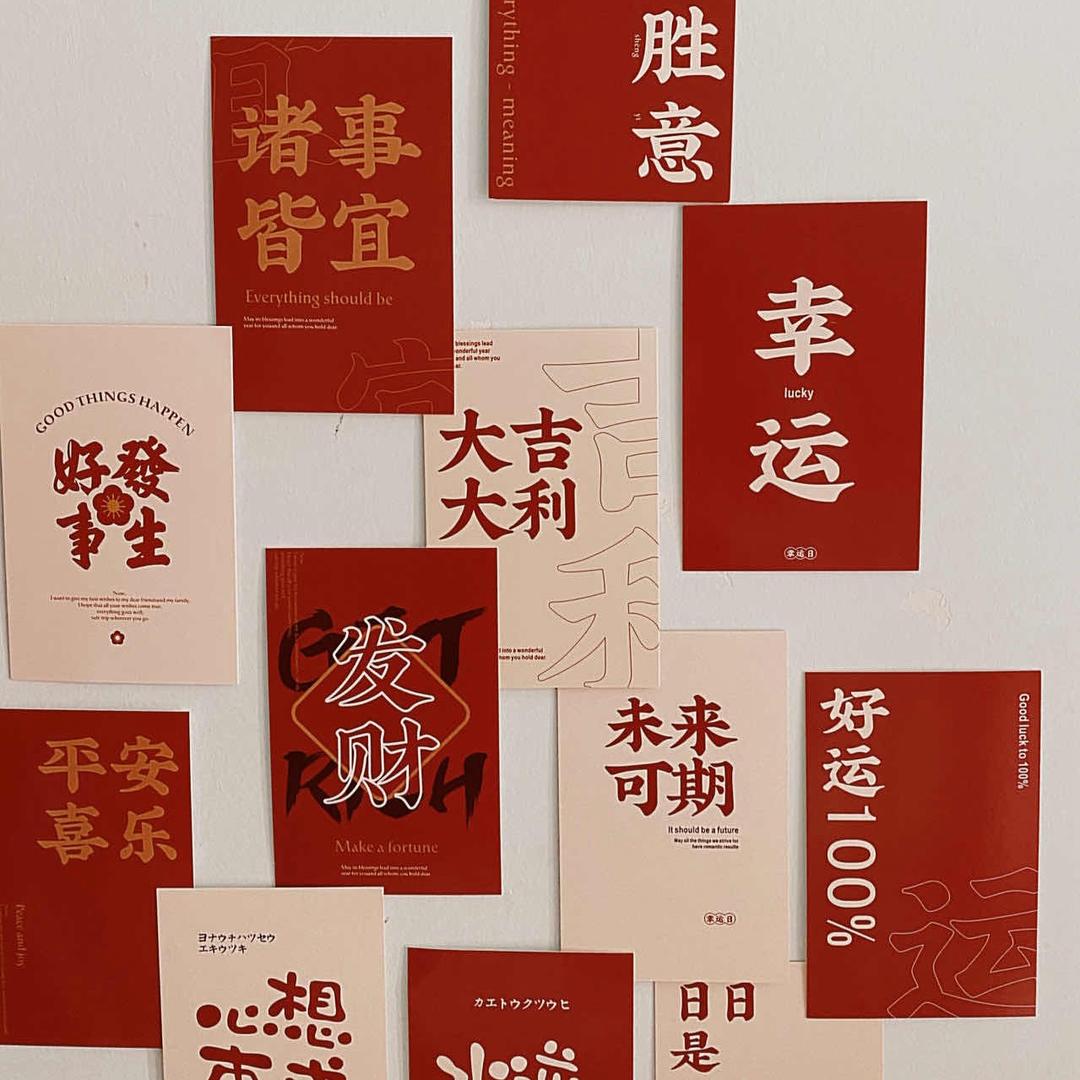 rything - meaning
胜
sheng
意
yi
诸事
皆宜
Everything should be
May in blessings lead into a wonderful
year for you and all whom you hold dear.
幸
lucky
运
幸运日
GOOD THINGS HAPPEN
好發
事生
Now,
I want to give my best wishes to my dear friend and my family.
I hope that all your wishes come true,
everything goes well,
safe trip wherever you go.
blessings lead
onderful year
and all whom you
ar.
大吉
大利
吉
利
d into a wonderful
hom you hold dear.
GET
RICH
发
财
Make a fortune
May in blessings lead into a wonderful
year for you and all whom you hold dear.
未来
可期
It should be a future
May all the things we strive for
have romantic results
幸运日
好运100%
Good luck to 100%
运
平安
喜乐
Peace and joy
ヨナウチハツセウ
エキウツキ
想
心
カエトウクツウヒ
日日
是